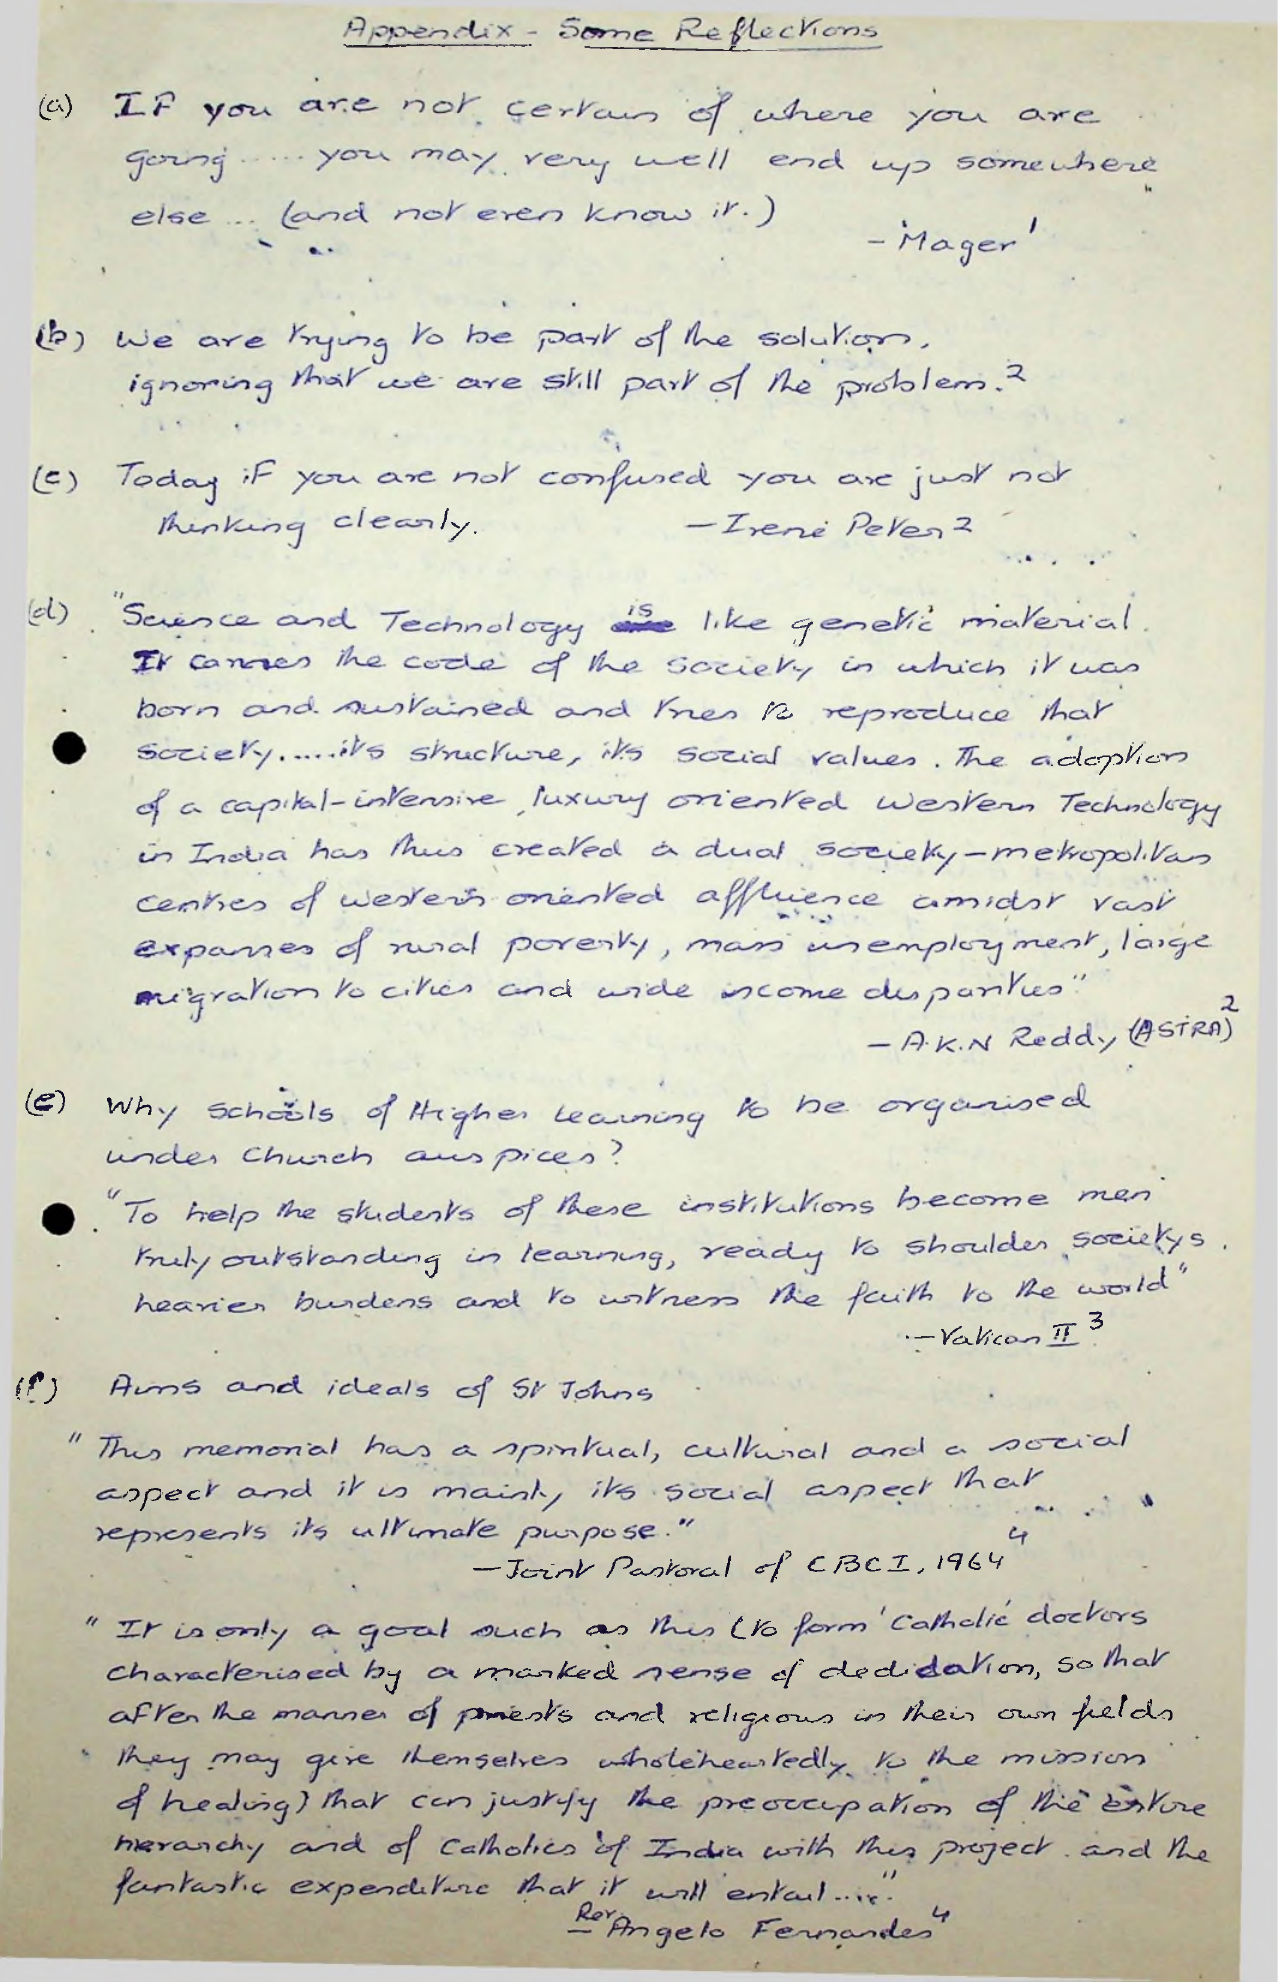 Appendix - Some Reflections
(a) If you are not certain of where you are
going ..... you may very well end up somewhere
else ... (and not even know it.)
- Mager 1
(b) We are trying to be part of the solution,
ignoring that we are still part of the problem. 2
(c) Today if you are not confused you are just not
thinking clearly. - Irene Peter 2
(d) "Science and Technology is like genetic material.
It carries the code of the society in which it was
born and sustained and tries to reproduce that
society......its structure, its social values. The adoption
of a capital-intensive, luxury oriented western Technology
in India has thus created a dual society - metropolitan
centres of western oriented affluence amidst vast
expanses of rural poverty, mass unemployment, large
migration to cities and wide income disparities"
- A.K.N Reddy (ASTRA) 2
(e) Why Schools of Higher Learning to be organised
under Church auspices?
"To help the students of these institutions become men
truly outstanding in learning, ready to shoulder societys
heavier burdens and to witness the faith to the world"
- Vatican II 3
(f) Aims and ideals of St Johns
"This memorial has a spiritual, cultural and a social
aspect and it is mainly its social aspect that
represents its ultimate purpose."
- Joint Pastoral of CBCI, 1964 4
"It is only a goal such as this (to form 'Catholic doctors
characterised by a marked sense of dedidation, so that
after the manner of priests and religious in their own fields
they may give themselves wholeheartedly to the mission
of healing) that can justify the preoccupation of the entire
hierarchy and of Catholics of India with this project and the
fantastic expenditure that it will entail...."
- Rev. Angelo Fernandes 4